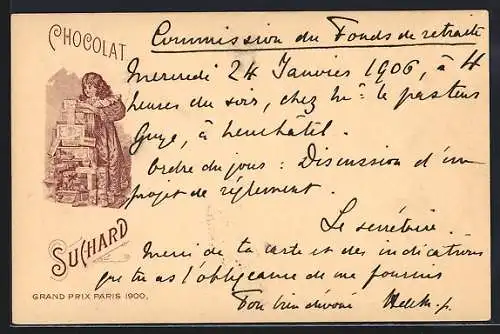 CHOCOLAT
Commission du Fonds de retraite
Mercredi 24 Janvier 1906, à 4
heures du soir, chez Mr. le pasteur
Guye, à Neuchâtel.
Ordre du jour : Discussion d'un
projet de règlement.
Le secrétaire.
SUCHARD
Merci de ta carte et des indications
que tu as l'obligeance de me fournir
Ton bien dévoué
GRAND PRIX PARIS 1900,